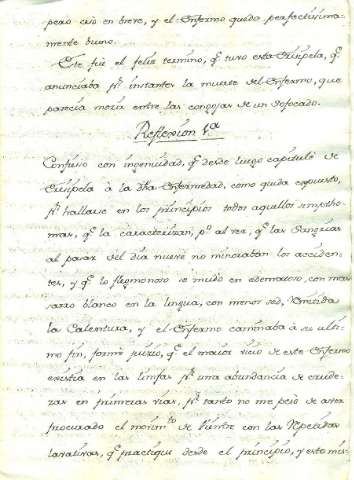 pero cedio en breve, y el Enfermo quedo perfectissima-
mente bueno.
Este fue el feliz termino, q.e tuvo esta Erisipela, q.e
anunciaba p.r instantes la muerte del Enfermo, que
parecia moria entre las congojas de un sofocado.
Reflexion 1.a
Confieso con ingenuidad, q.e desde luego capitulé de
Erisipela à la dha Enfermedad, como queda expuesto,
p.r hallarse en los principios todos aquellos simptho-
mas, q.e la caracterizan, p.o al ver, q.e las sangrias
al pasar del dia nueve no minoraban los acciden-
tes, y q.e lo flegmonoso se mudo en edematoso, con mas
sarro blanco en la lengua, con menor sed, remitida
la Calentura, y el Enfermo caminaba à su ulti-
mo fin, formé juicio, q.e el maior vicio de este Enfermo
existia en las limfas p.r una abundancia de crude-
zas en primeras vias, p.r tanto no me pesò de aver
procurado el movim.to de vientre con las repetidas
lavativas, q.e practiqué desde el principio, y esto mis-